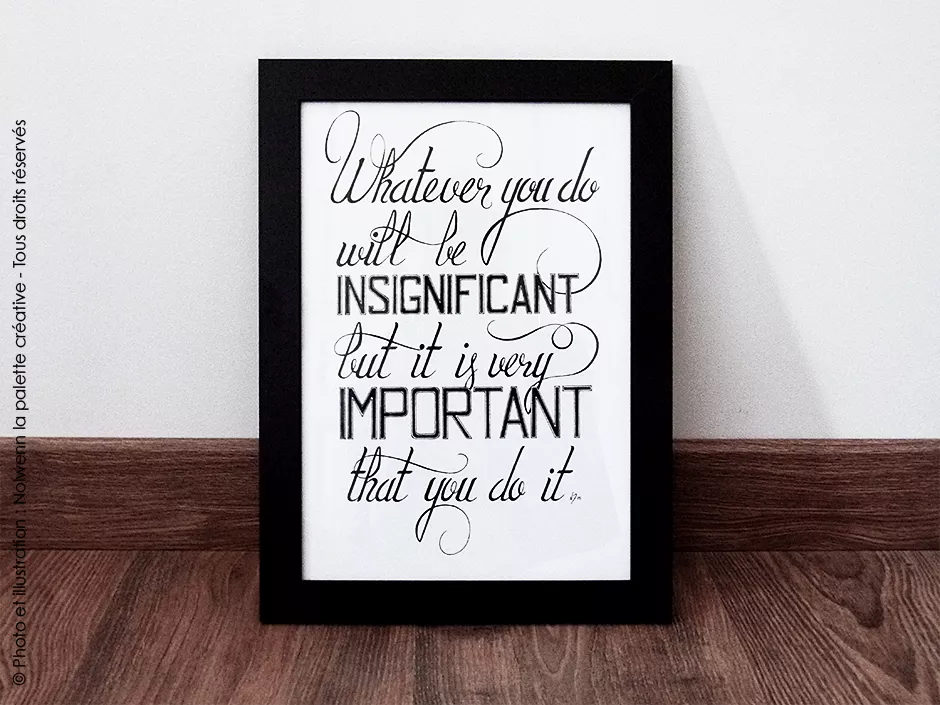 Whatever you do
will be
INSIGNIFICANT
but it is very
IMPORTANT
that you do it
© Photo et illustration : Nolwenn la palette créative - Tous droits réservés